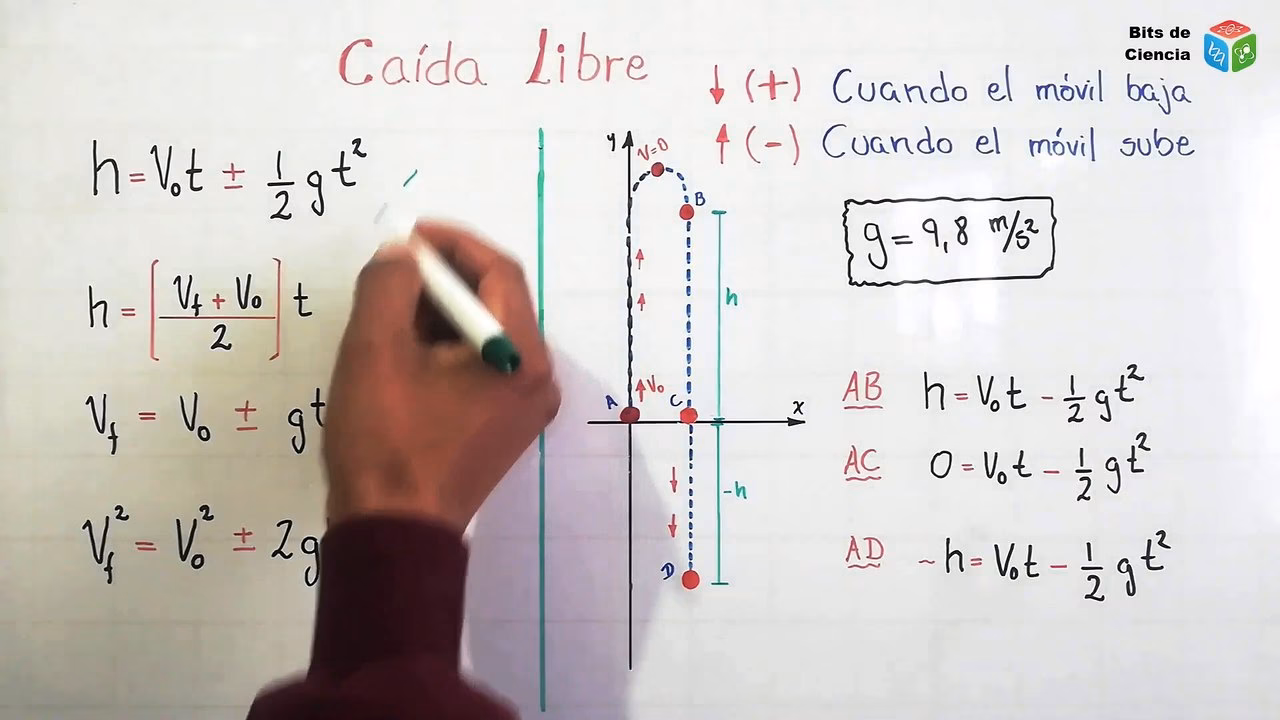 Bits de
Ciencia
Caída Libre
↓ (+) Cuando el móvil baja
↑ (-) Cuando el móvil sube
h = V₀t ± 1/2 gt²
h = [(V_f + V₀)/2] t
V_f = V₀ ± gt
V_f² = V₀² ± 2g
y
V=0
B
h
A
V₀
C
x
-h
D
g = 9,8 m/s²
AB h = V₀t - 1/2 gt²
AC 0 = V₀t - 1/2 gt²
AD -h = V₀t - 1/2 gt²